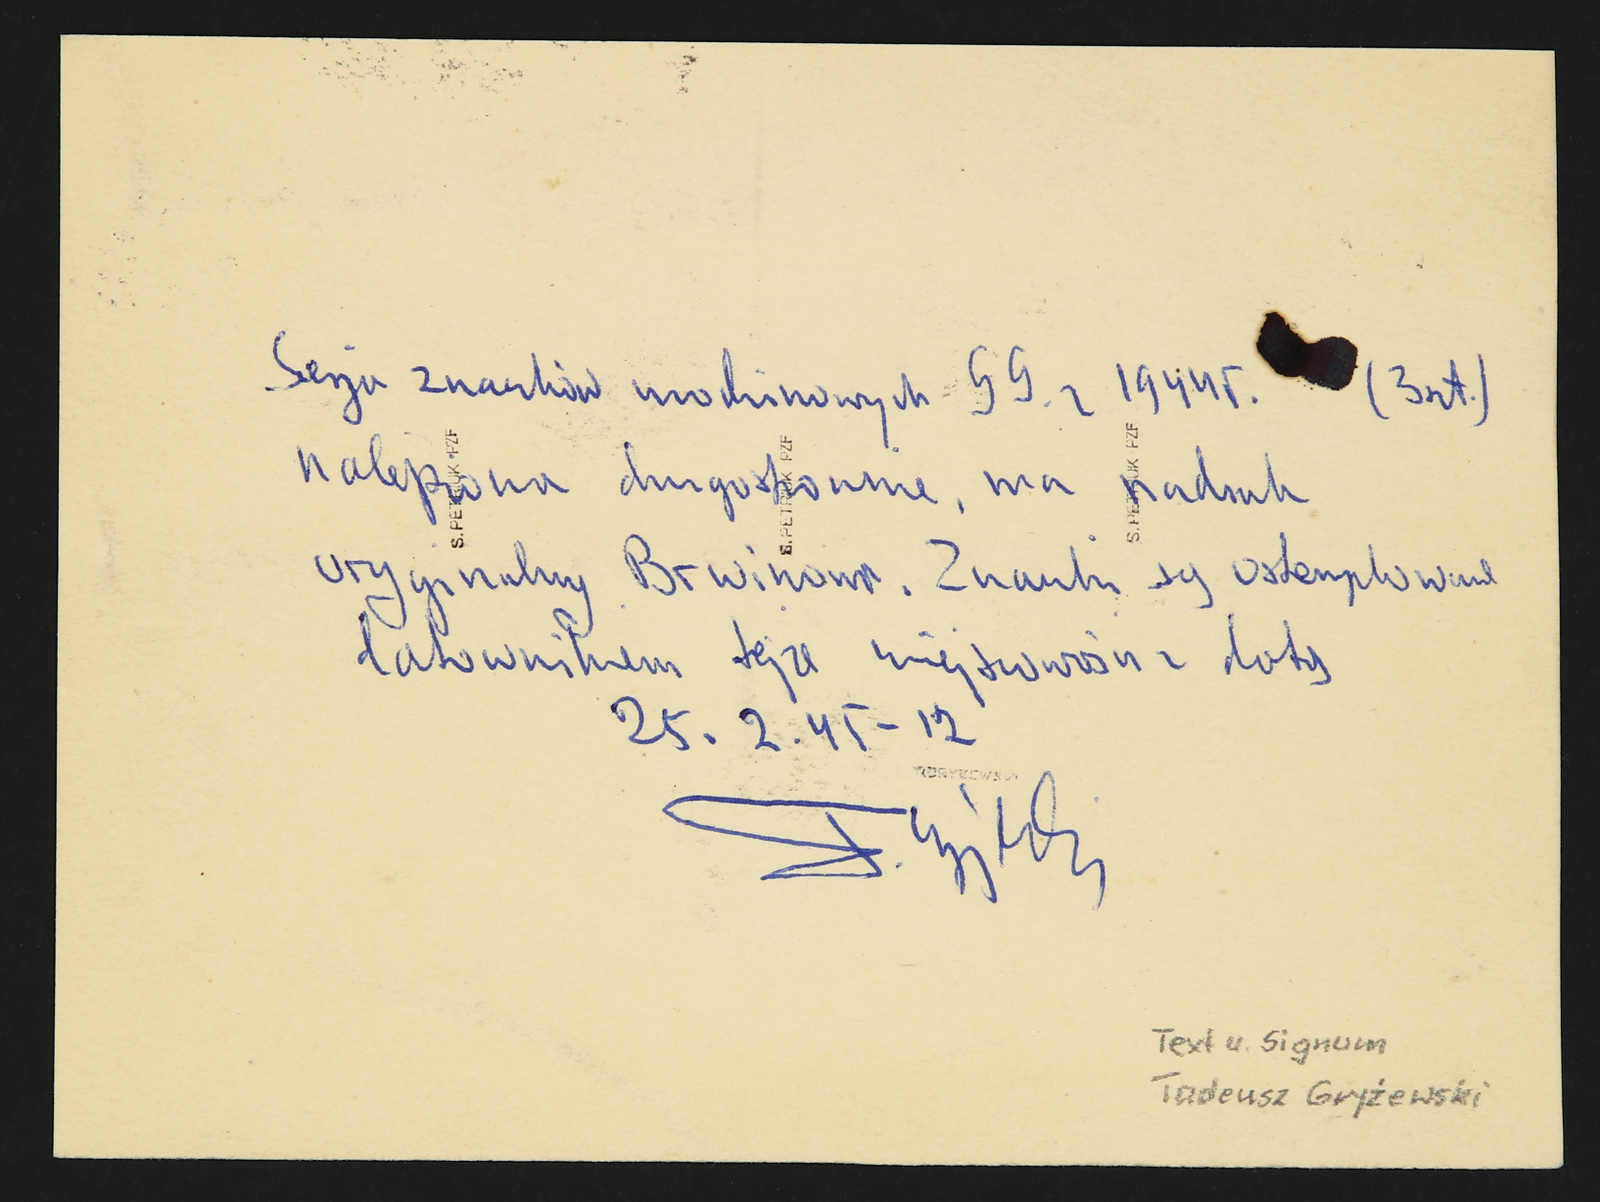 Serja znaczków urodzinowych GG. z 1944r. (3szt.)
nalepiona drugostronnie, ma nadruk
oryginalny Brwinowa. Znaczki są ostemplowane
datownikiem tejże miejscowości z datą
25. 2. 45-12
S. PETRIUK PZF
S. PETRIUK PZF
S. PETRIUK PZF
T. Gryżewski
Text u. Signum
Tadeusz Gryżewski